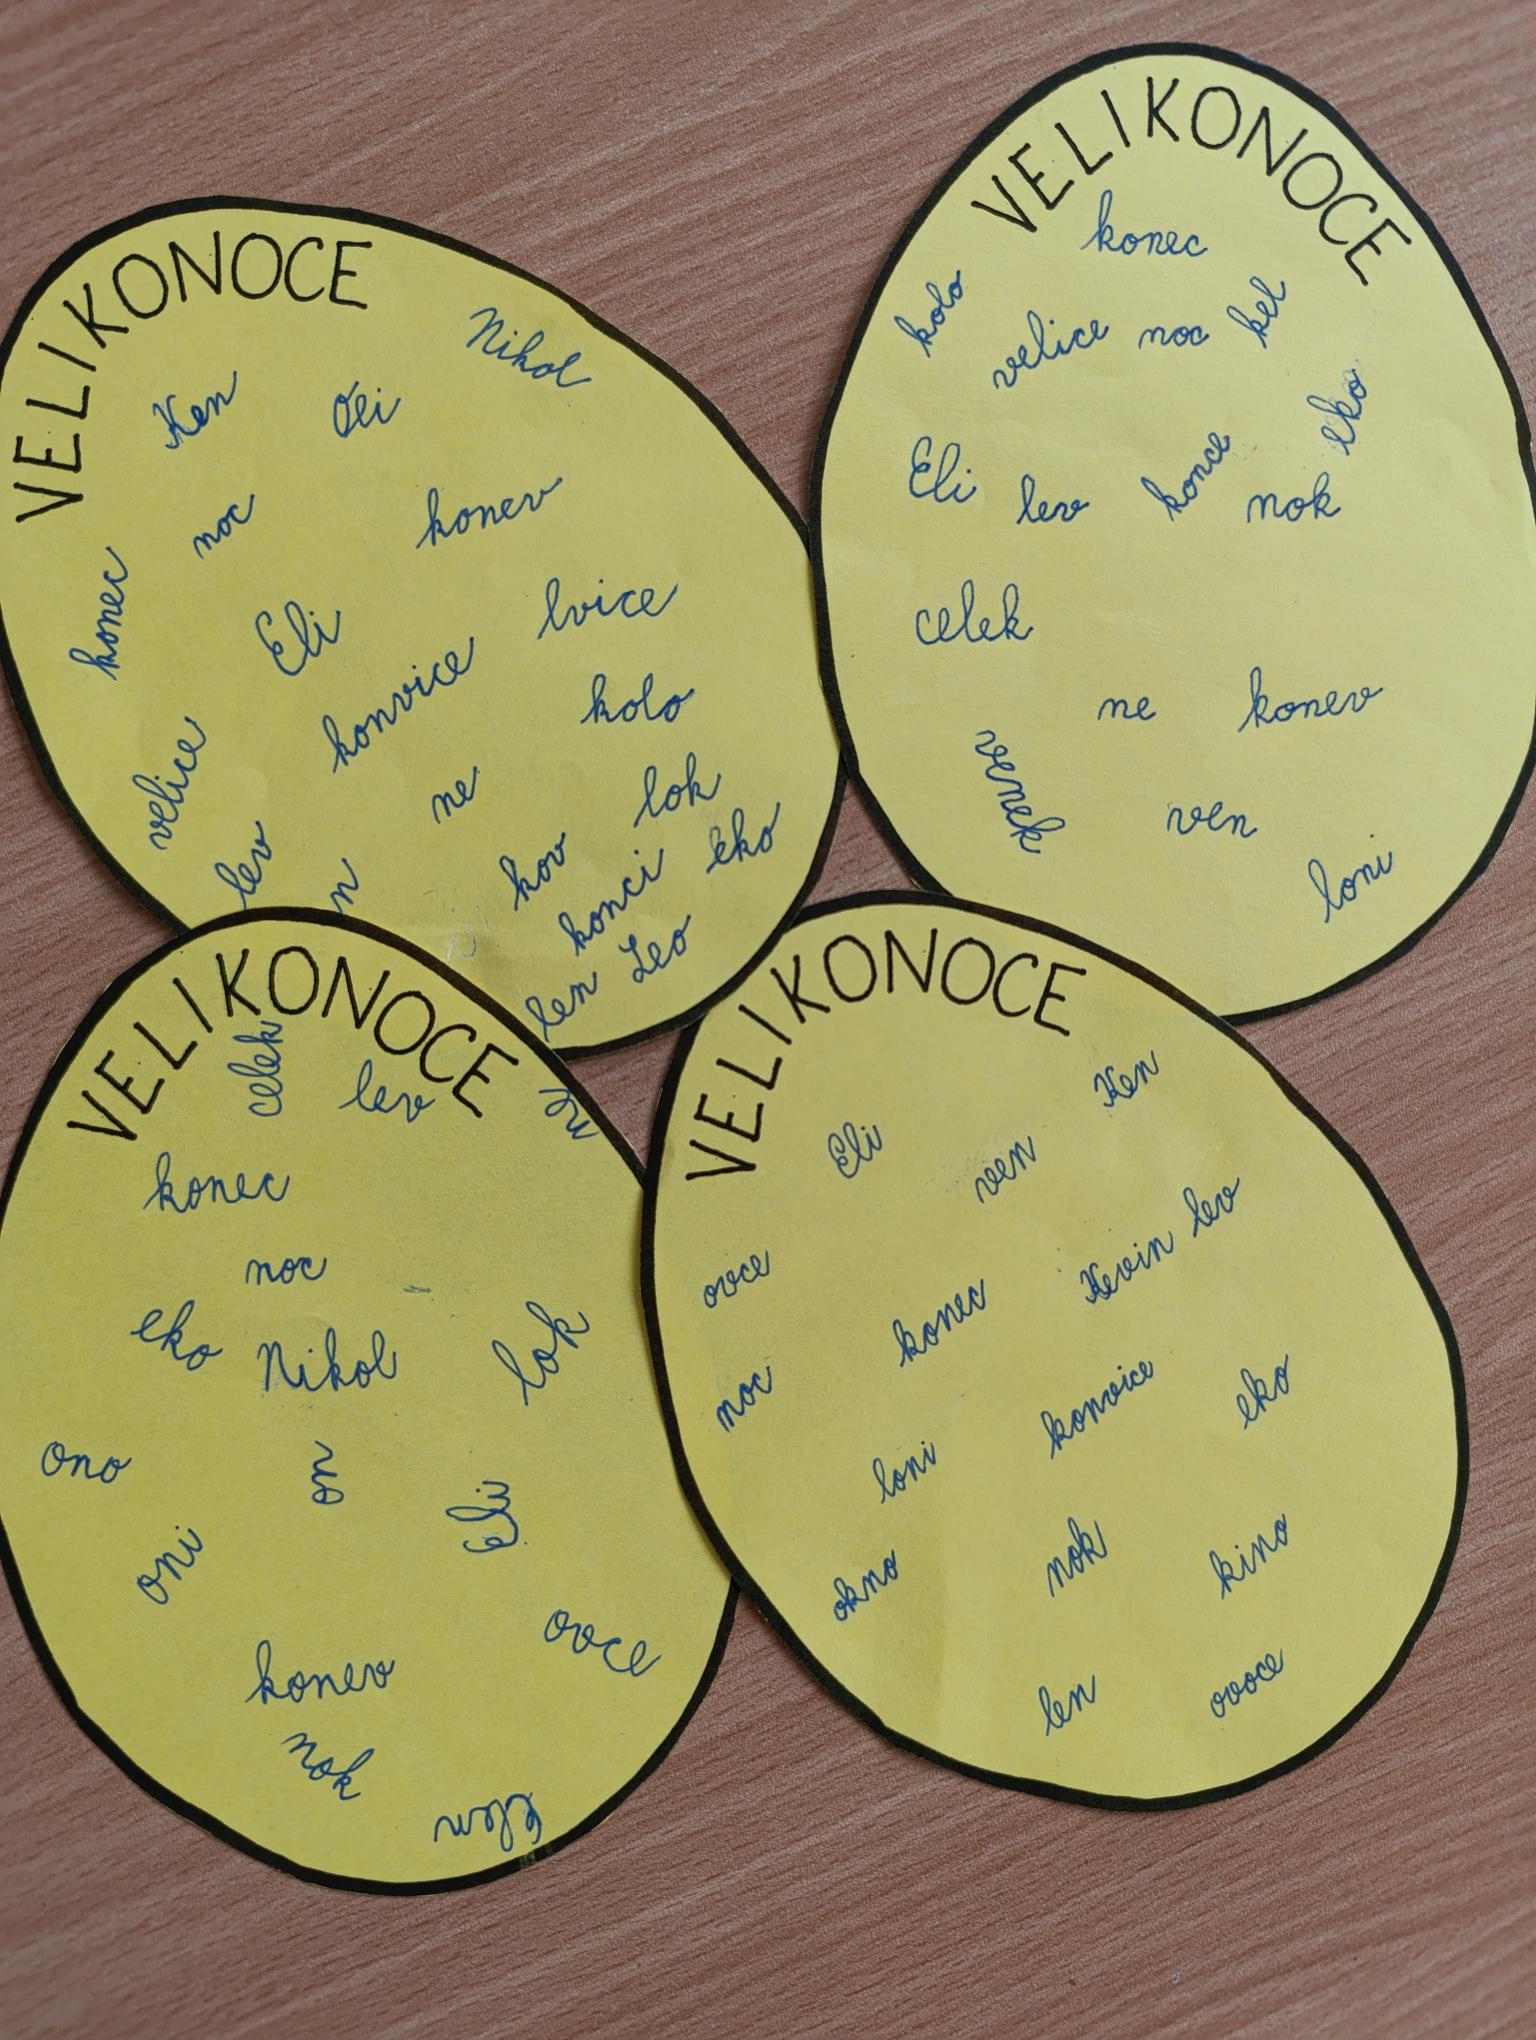 VELIKONOCE
Nikol
Ken
Oli
noc
konev
konec
Eli
lvice
konvice
kolo
velice
ne
lok
lev
kov
eko
konci
len Leo
VELIKONOCE
konec
kolo
velice noc kel
eko
Eli lev konce nok
celek
ne konev
venek
ven
loni
VELIKONOCE
celek
lev
konec
noc
eko
Nikol
lok
ono
on
Eli
oni
ovce
konev
nok
VELIKONOCE
Ken
Eli
ven
lev
ovce
Kevin
konec
noc
konvice
eko
loni
okno
nok
kino
len
ovoce